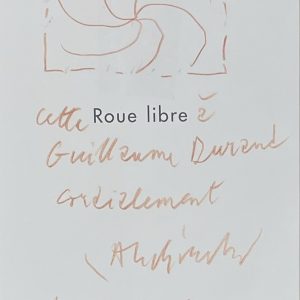 cette Roue libre à
Guillaume Durand
cordialement
Alechinsky